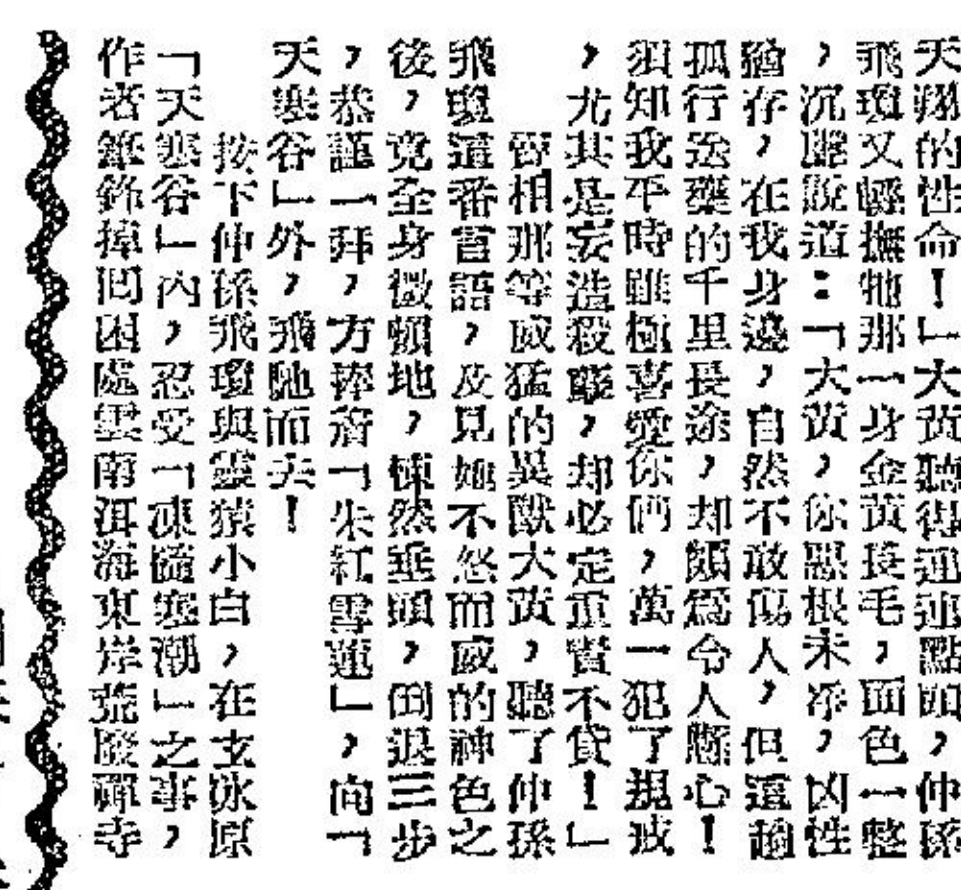 天翔的性命！」大黃聽得連連點頭，仲孫
飛瓊又輕撫牠那一身金黃長毛，面色一整
，沉聲說道：「大黃，你惡根未淨，凶性
猶存，在我身邊，自然不敢傷人，但這趟
孤行送藥的千里長途，却頗爲令人懸心！
須知我平時雖極喜愛你們，萬一犯了規戒
，尤其是妄造殺孽，却必定重責不貸！」
說相那等威猛的異獸大黃，聽了仲孫
飛瓊這番言語，及見她不怒而威的神色之
後，竟全身微顫地，悚然垂頭，倒退三步
，恭謹一拜，方捧着「朱紅雪蓮」，向「
天寒谷」外，飛馳而去！
按下仲孫飛瓊與靈猿小白，在玄冰原
「天寒谷」內，忍受「凍髓寒潮」之事，
作者筆鋒掉回困處雲南洱海東岸荒廢禪寺